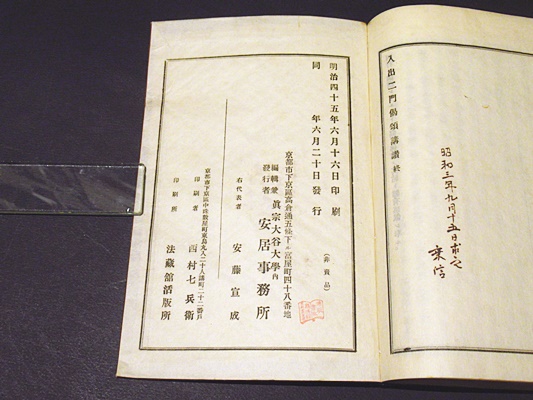 入出二門偈頌講讃 終
昭和三年九月十五日求之
明治四十五年六月十六日印刷
同 年六月二十日發行
(非賣品)
京都市下京區高倉通五條下ル富屋町四十八番地
編輯兼發行者 眞宗大谷大學内 安居事務所
右代表者 安藤宣成
印刷者 西村七兵衛
印刷所 法藏館活版所